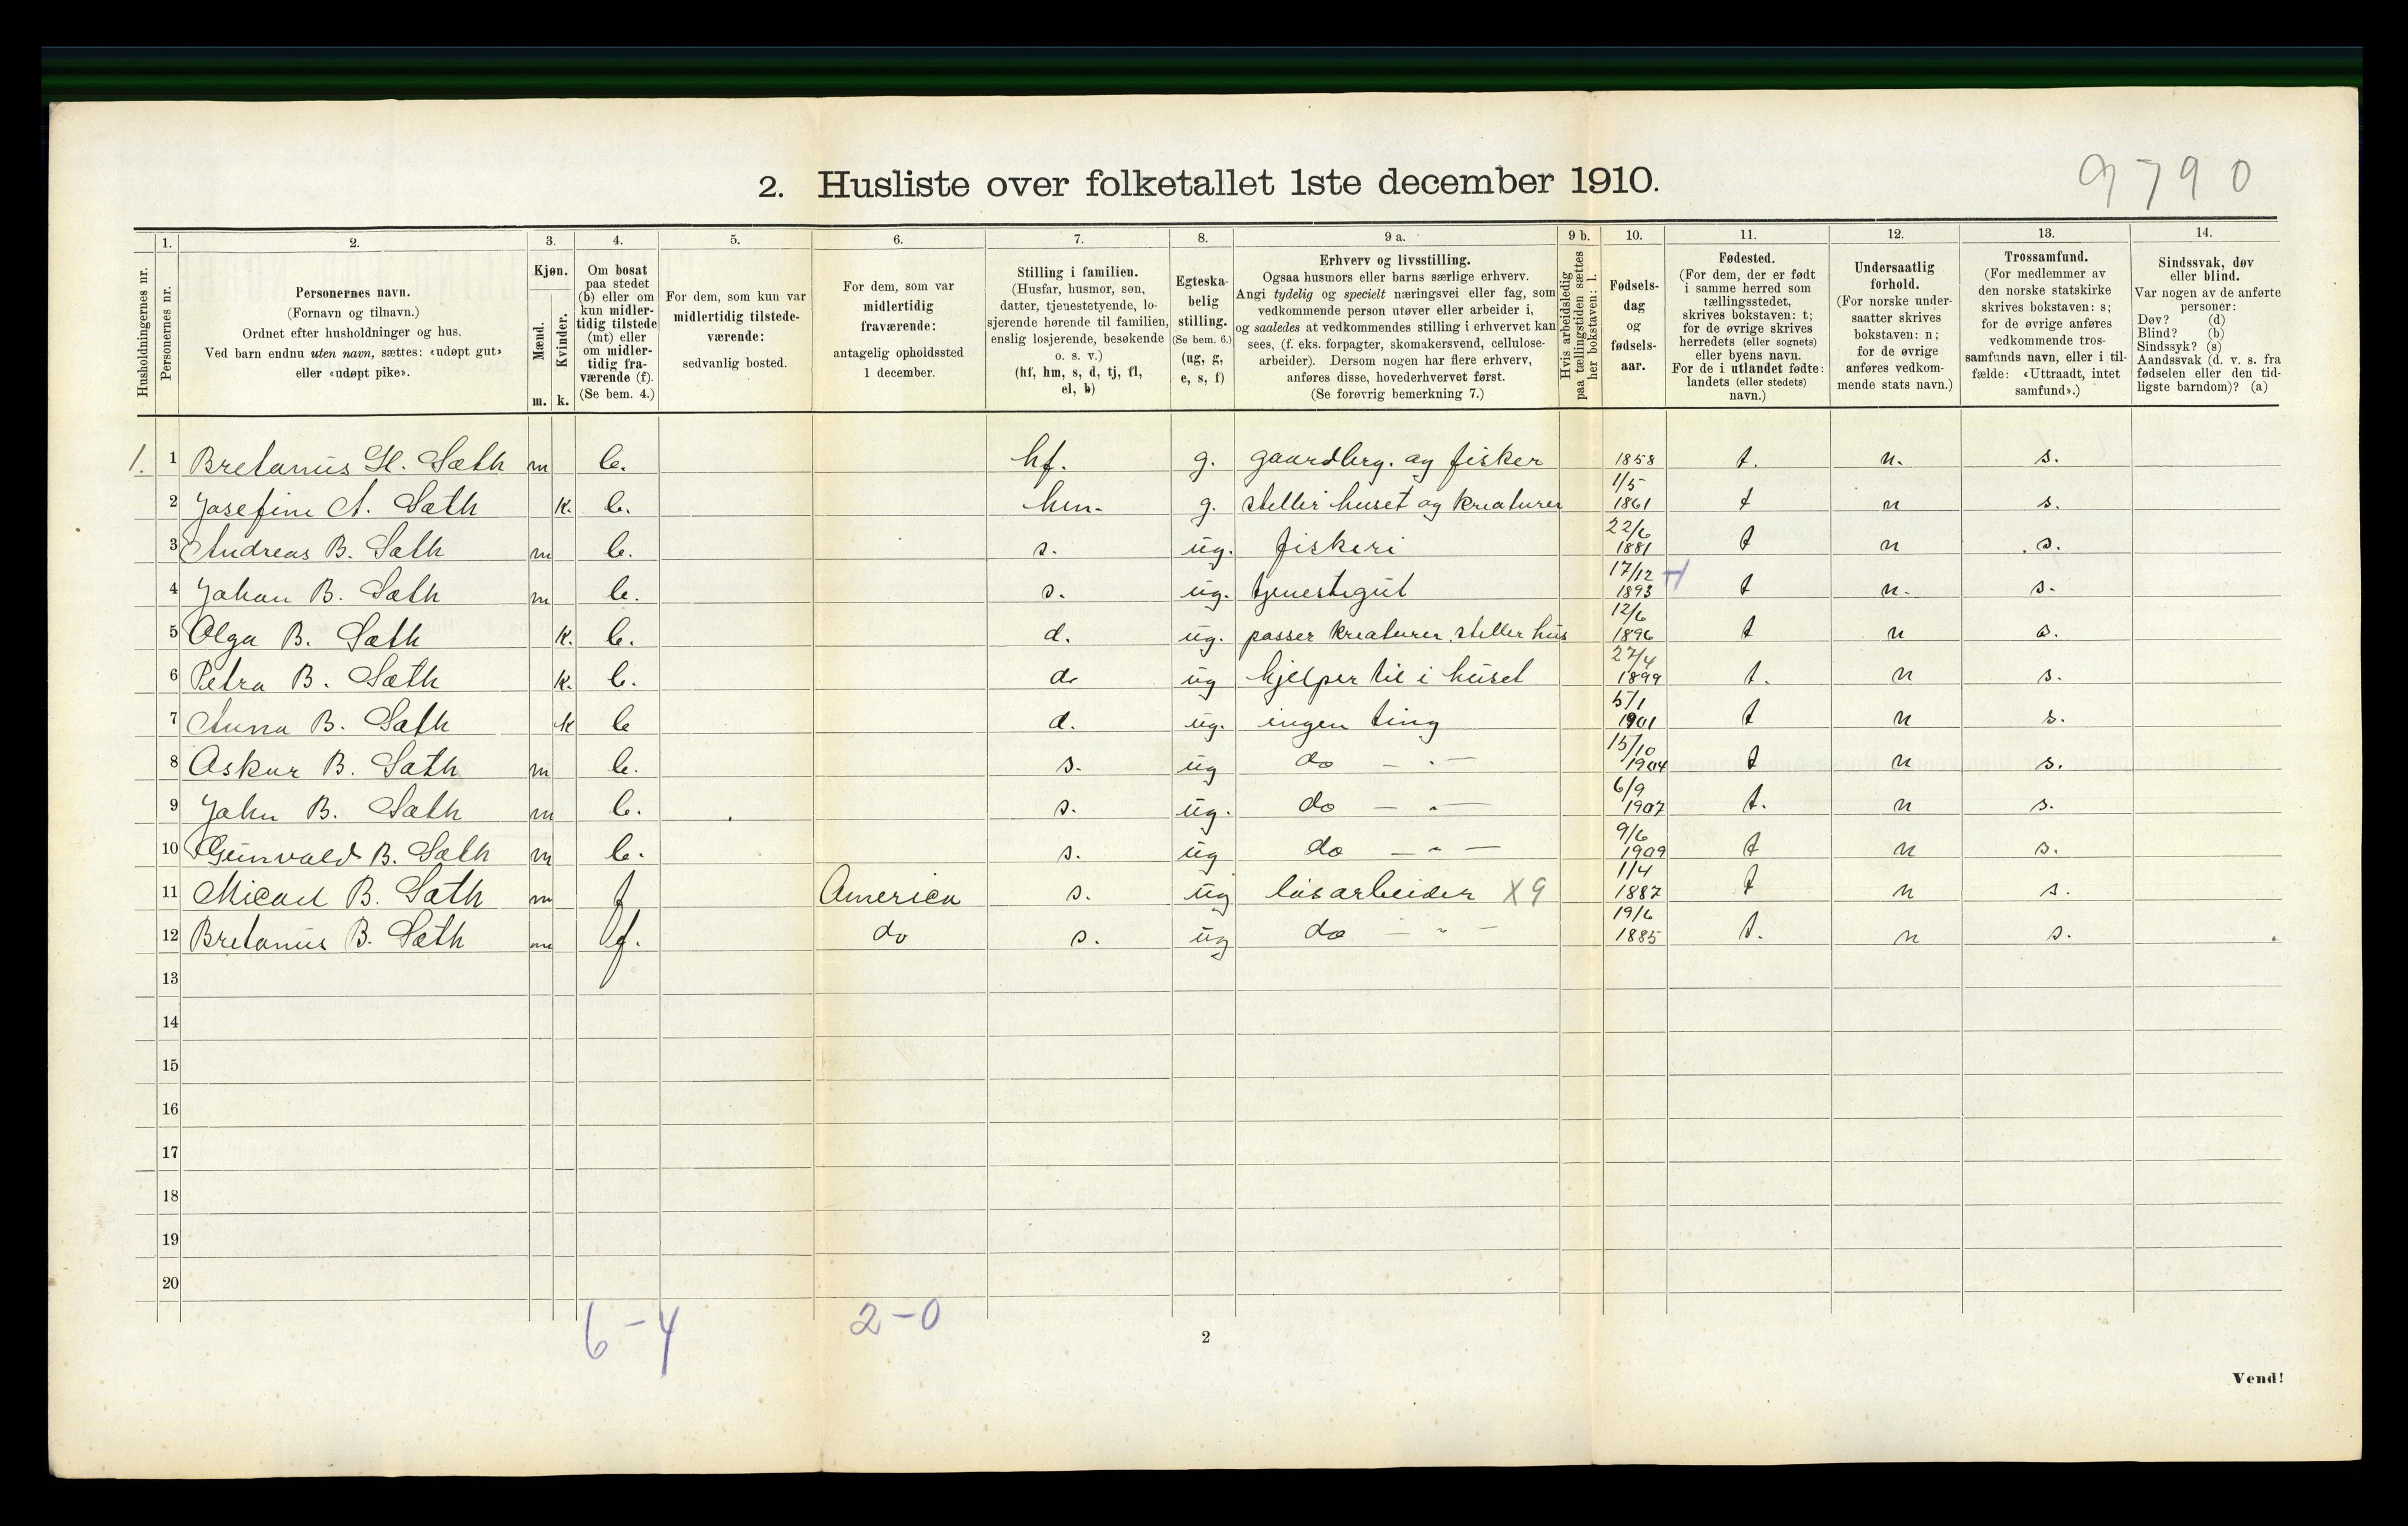 9790
2. Husliste over folketallet 1ste december 1910.
Husholdningernes nr.
1.
Personernes nr.
2.
Personernes navn.
(Fornavn og tilnavn.)
Ordnet efter husholdninger og hus.
Ved barn endnu uten navn, sættes: «udøpt gut»
eller «udøpt pike».
3.
Kjøn.
Mænd.
Kvinder.
m. k.
4.
Om bosat
paa stedet
(b) eller om
kun midler-
tidig tilstede
(mt) eller
om midler-
tidig fra-
værende (f).
(Se bem. 4.)
5.
For dem, som kun var
midlertidig tilstede-
værende:
sedvanlig bosted.
6.
For dem, som var
midlertidig
fraværende:
antagelig opholdssted
1 december.
7.
Stilling i familien.
(Husfar, husmor, søn,
datter, tjenestetyende, lo-
sjerende hørende til familien,
enslig losjerende, besøkende
o. s. v.)
(hf, hm, s, d, tj, fl,
el, b)
8.
Egteska-
belig
stilling.
(Se bem. 6.)
(ug, g,
e, s, f)
9 a.
Erhverv og livsstilling.
Ogsaa husmors eller barns særlige erhverv.
Angi tydelig og specielt næringsvei eller fag, som
vedkommende person utøver eller arbeider i,
og saaledes at vedkommendes stilling i erhvervet kan
sees, (f. eks. forpagter, skomakersvend, cellulose-
arbeider). Dersom nogen har flere erhverv,
anføres disse, hovederhvervet først.
(Se forøvrig bemerkning 7.)
9 b.
Hvis arbeidsledig
paa tællingstiden sættes
her bokstaven: l.
10.
Fødsels-
dag
og
fødsels-
aar.
11.
Fødested.
(For dem, der er født
i samme herred som
tællingsstedet,
skrives bokstaven: t;
for de øvrige skrives
herredets (eller sognets)
eller byens navn.
For de i utlandet fødte:
landets (eller stedets)
navn.)
12.
Undersaatlig
forhold.
(For norske under-
saatter skrives
bokstaven: n;
for de øvrige
anføres vedkom-
mende stats navn.)
13.
Trossamfund.
(For medlemmer av
den norske statskirke
skrives bokstaven: s;
for de øvrige anføres
vedkommende tros-
samfunds navn, eller i til-
fælde: «Uttraadt, intet
samfund».)
14.
Sindssvak, døv
eller blind.
Var nogen av de anførte
personer:
Døv? (d)
Blind? (b)
Sindssyk? (s)
Aandssvak (d. v. s. fra
fødselen eller den tid-
ligste barndom)? (a)
1. 1 Bretanus H. Sæth m b. hf. g. gaardbrg. og fisker 1858 t. n. s.
2 Josefine A. Sæth k. b. hm. g. steller huset og kreaturer 1/5 1861 t n s.
3 Andreas B. Sæth m b. s. ug. fiskeri 22/6 1881 t n s.
4 Johan B. Sæth m b. s. ug. tjenestegut 17/12 1893 t n. s.
5 Olga B. Sæth k. b. d. ug. passer kreaturer, steller hus 12/6 1896 t n s.
6 Petra B. Sæth k. b. d. ug hjelper til i huset 27/4 1899 t. n s.
7 Anna B. Sæth k b d. ug. ingen ting 5/1 1901 t n s.
8 Askur B. Sæth m b. s. ug do - " - 15/10 1904 t n s.
9 John B. Sæth m b. s. ug. do - " - 6/9 1907 t. n s.
10 Gunvald B. Sæth m b. s. ug do - " - 9/6 1909 t n s.
11 Micael B. Sæth m f America s. ug løsarbeider X9 1/4 1887 t n s.
12 Bretanus B. Sæth m f. do s. ug do - " - 19/6 1885 t. n s.
13
14
15
16
17
18
19
20
6-4 2-0
2
Vend!